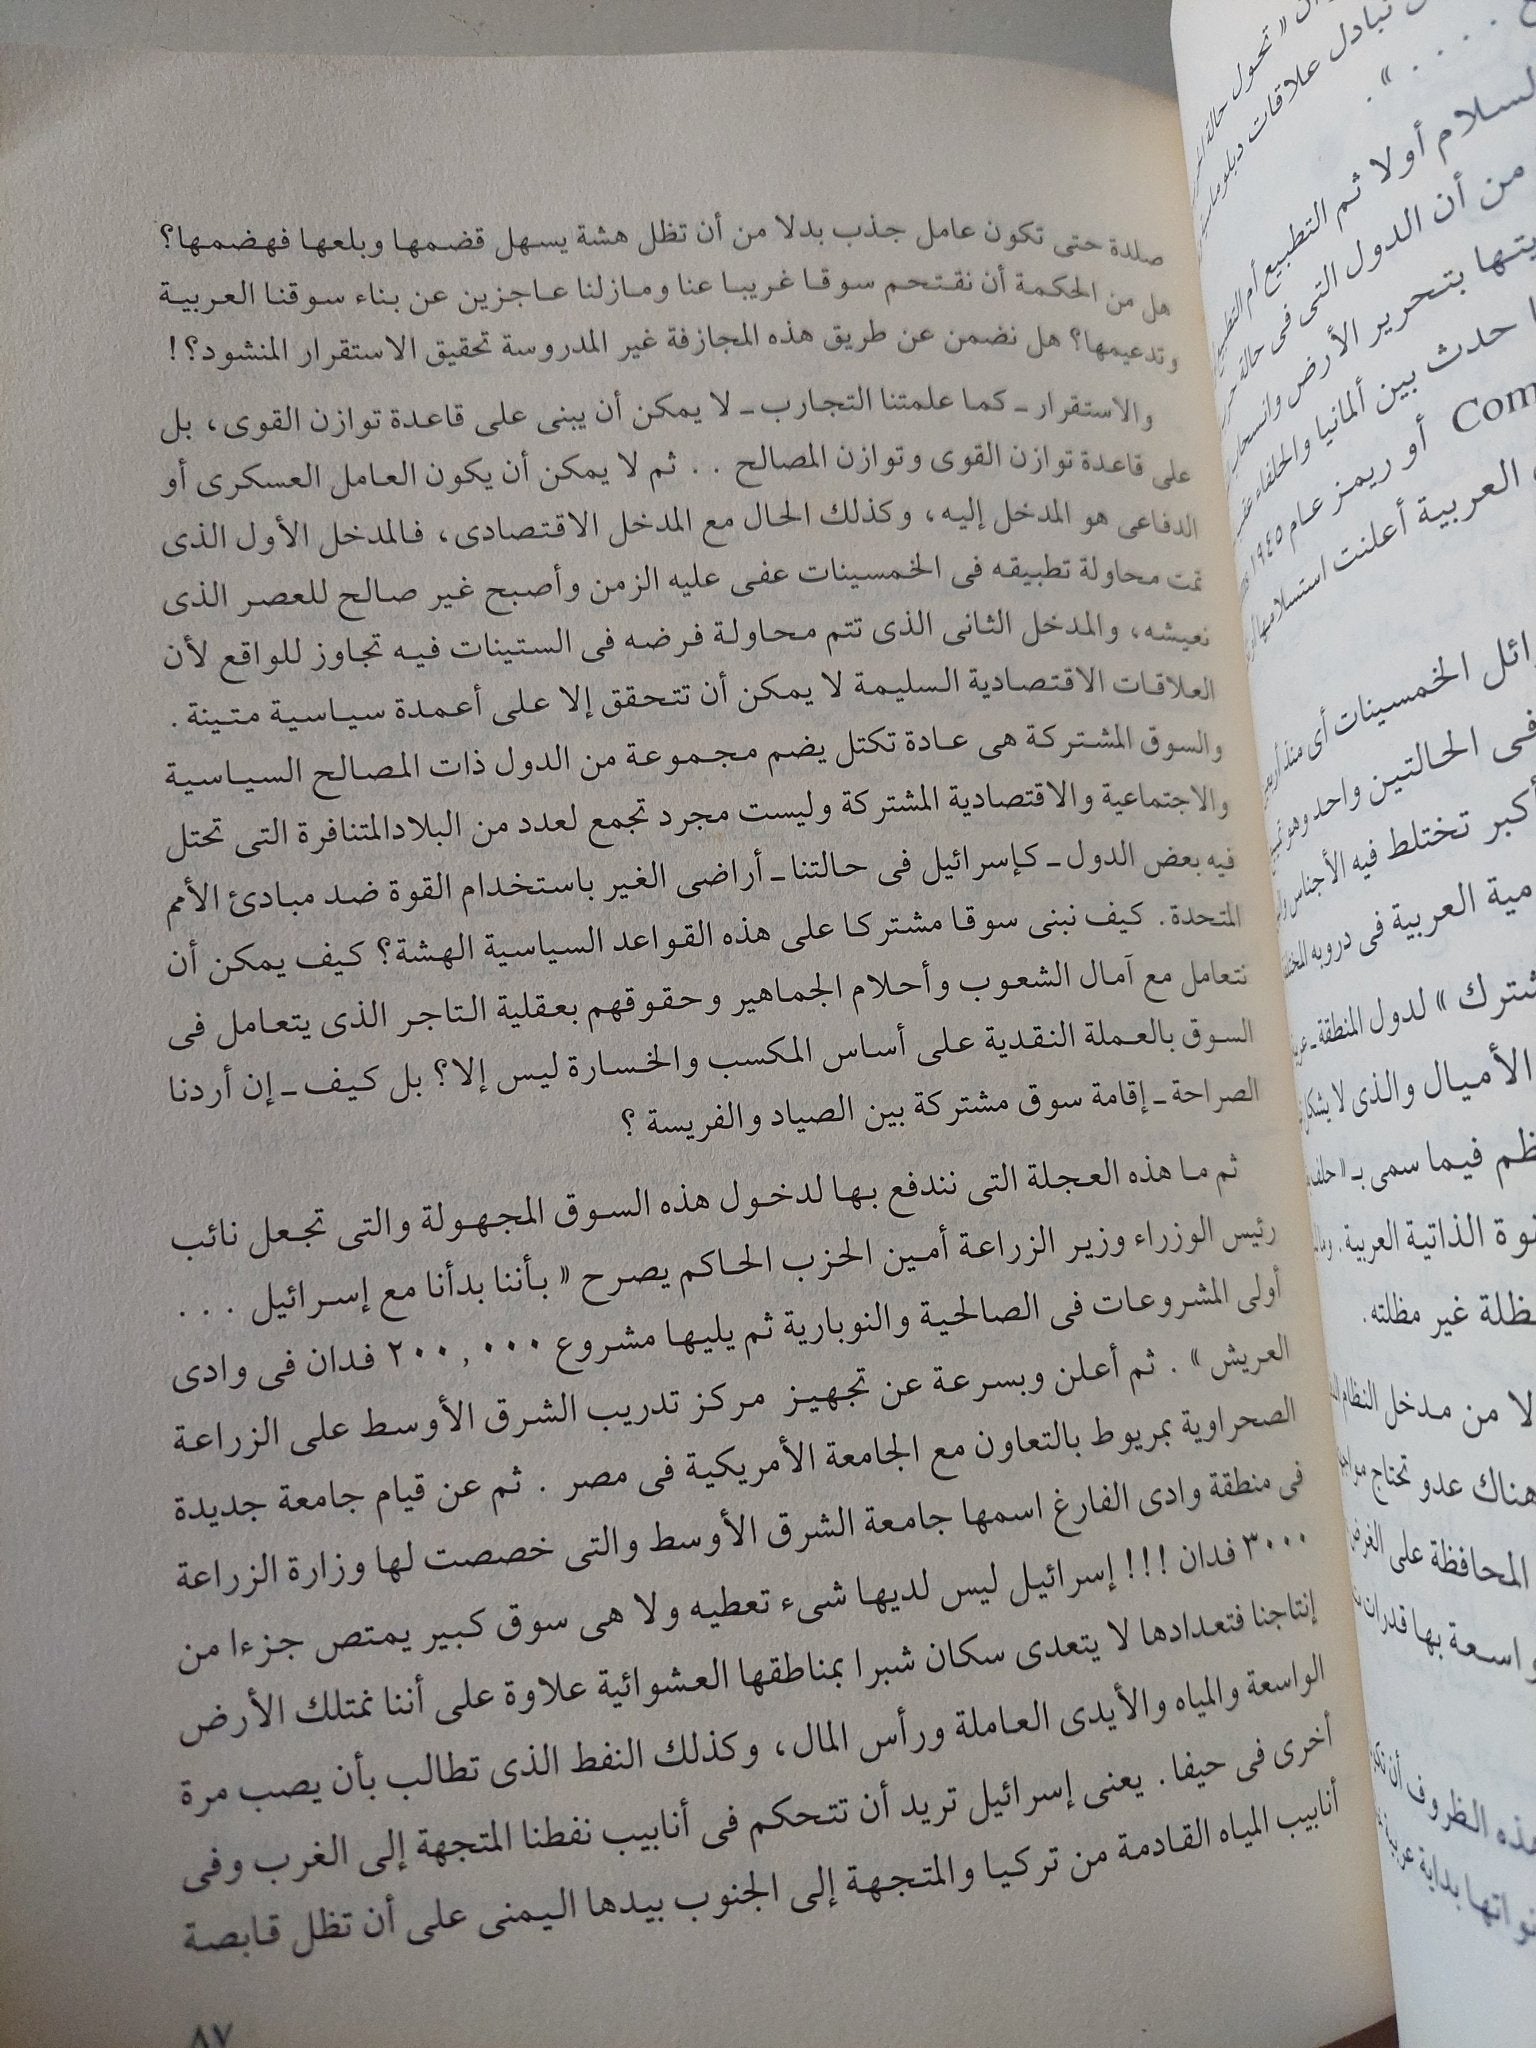 صلدة حتى تكون عامل جذب بدلا من أن تظل هشة يسهل قضمها وبلعها فهضمها؟
هل من الحكمة أن نقتحم سوقا غريبا عنا ومازلنا عاجزين عن بناء سوقنا العربية
وتدعيمها؟ هل نضمن عن طريق هذه المجازفة غير المدروسة تحقيق الاستقرار المنشود؟!
والاستقرار ـ كما علمتنا التجارب ـ لا يمكن أن يبنى على قاعدة توازن القوى، بل
على قاعدة توازن القوى وتوازن المصالح . . ثم لا يمكن أن يكون العامل العسكرى أو
الدفاعى هو المدخل إليه، وكذلك الحال مع المدخل الاقتصادى، فالمدخل الأول الذى
تمت محاولة تطبيقه فى الخمسينات عفى عليه الزمن وأصبح غير صالح للعصر الذى
نعيشه، والمدخل الثانى الذى تتم محاولة فرضه فى الستينات فيه تجاوز للواقع لأن
العلاقات الاقتصادية السليمة لا يمكن أن تتحقق إلا على أعمدة سياسية متينة .
والسوق المشتركة هى عادة تكتل يضم مجموعة من الدول ذات المصالح السياسية
والاجتماعية والاقتصادية المشتركة وليست مجرد تجمع لعدد من البلادالمتنافرة التى تحتل
فيه بعض الدول ـ كإسرائيل فى حالتنا ـ أراضى الغير باستخدام القوة ضد مبادئ الأمم
المتحدة . كيف نبنى سوقا مشتركا على هذه القواعد السياسية الهشة؟ كيف يمكن أن
نتعامل مع آمال الشعوب وأحلام الجماهير وحقوقهم بعقلية التاجر الذى يتعامل فى
السوق بالعملة النقدية على أساس المكسب والخسارة ليس إلا؟ بل كيف ـ إن أردنا
الصراحة ـ إقامة سوق مشتركة بين الصياد والفريسة ؟
ثم ما هذه العجلة التى نندفع بها لدخول هذه السوق المجهولة والتى تجعل نائب
رئيس الوزراء وزير الزراعة أمين الحزب الحاكم يصرح « بأننا بدأنا مع إسرائيل . . .
أولى المشروعات فى الصالحية والنوبارية ثم يليها مشروع ٢٠٠,٠٠٠ فدان فى وادى
العريش » . ثم أعلن وبسرعة عن تجهيز مركز تدريب الشرق الأوسط على الزراعة
الصحراوية بمريوط بالتعاون مع الجامعة الأمريكية فى مصر . ثم عن قيام جامعة جديدة
فى منطقة وادى الفارغ اسمها جامعة الشرق الأوسط والتى خصصت لها وزارة الزراعة
٣٠٠٠ فدان !!! إسرائيل ليس لديها شىء تعطيه ولا هى سوق كبير يمتص جزءا من
إنتاجنا فتعدادها لا يتعدى سكان شبرا بمناطقها العشوائية علاوة على أننا نمتلك الأرض
الواسعة والمياه والأيدى العاملة ورأس المال، وكذلك النفط الذى تطالب بأن يصب مرة
أخرى فى حيفا . يعنى إسرائيل تريد أن تتحكم فى أنابيب نفطنا المتجهة إلى الغرب وفى
أنابيب المياه القادمة من تركيا والمتجهة إلى الجنوب بيدها اليمنى على أن تظل قابصة
٨٧
تبادل علاقات
« تحول حالة
السلام أولا ثم التطبيع أم
من أن الدول التى فى حالة
بتحرير الأرض
حدث بين ألمانيا والحلفاء
Com أو ريمز عام ١٩٤٥
العربية أعلنت
الخمسينات أى منذ
فى الحالتين واحد وهو
أكبر تختلط فيه الأجناس
العربية فى دروبه
» لدول المنطقة ـ
الأميال والذى لا
فيما سمى بـ «
الذاتية العربية .
غير مظلته.
لا من مدخل النظام
هناك عدو تحتاج
المحافظة على
واسعة بها قدرات
الظروف أن
بداية